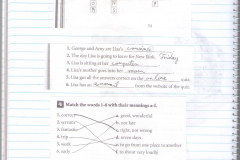 1. George and Amy are Lisa's cousins
2. The day Lisa is going to leave for New York. Friday
3. Lisa is sitting at her computer
4. Lisa's mother goes into her room
5. Lisa got all the answers correct on the online quiz.
6. Lisa has an e-mail from the website of the quiz.
4 Match the words 1-6 with their meanings a-f.
1. correct a. great, wonderful
2. arrive b. not late
3. fantastic c. right, not wrong
4. trip d. seven days
5. week e. to go from one place to another
6. early f.